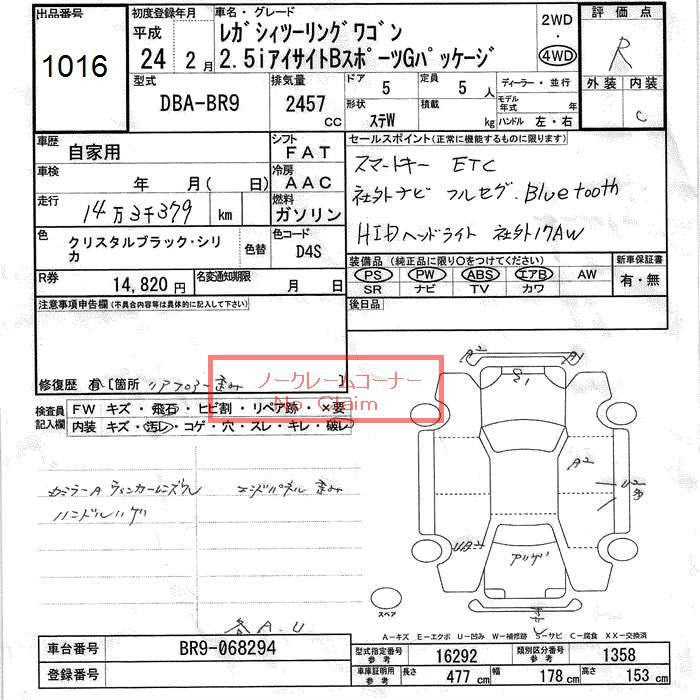 出品番号
1016
初度登録年月
平成
24 2月
車名・グレード
レガシィツーリングワゴン
2.5iアイサイトBスポーツGパッケージ
2WD
・
4WD
評価点
R
外装 内装
C
型式
DBA-BR9
排気量
2457
CC
ドア
5
定員
5 人
ディーラー・並行
形状
ステW
積載
kg
モデル年式 年
ハンドル 左・右
車歴
自家用
シフト
FAT
車検
年 月( 日)
冷房
AAC
走行
14万3千379 km
燃料
ガソリン
色
クリスタルブラック・シリカ
色替
色コード
D4S
R券
14,820円
名変通知期限
月 日
セールスポイント(正常に機能するものに限ります)
スマートキー ETC
社外ナビ フルセグ.Bluetooth
HIDヘッドライト 社外17AW
装備品(純正品に限り○をつけてください)
PS PW ABS エアB AW
SR ナビ TV カワ
新車保証書
有・無
後日品
注意事項申告欄(不具合内容等は具体的に記入して下さい)
修復歴 有[箇所 リアフロアー歪み ]
ノークレームコーナー
No Claim
検査員
記入欄
FW キズ・飛石・ヒビ割・リペア跡・×要
内装 キズ・汚レ・コゲ・穴・スレ・キレ・破レ
エンドパネル 歪み
ハンドルハゲ
各A.U
A2
A1
S1
A2
U2
UB2
スペア
A-キズ E-エクボ U-凹み W-補修跡 S-サビ C-腐食 XX-交換済
車台番号
BR9-068294
登録番号
型式指定番号
参考
16292
類別区分番号
参考
1358
車庫証明用
参考
長さ 477 cm
幅 178 cm
高さ 153 cm